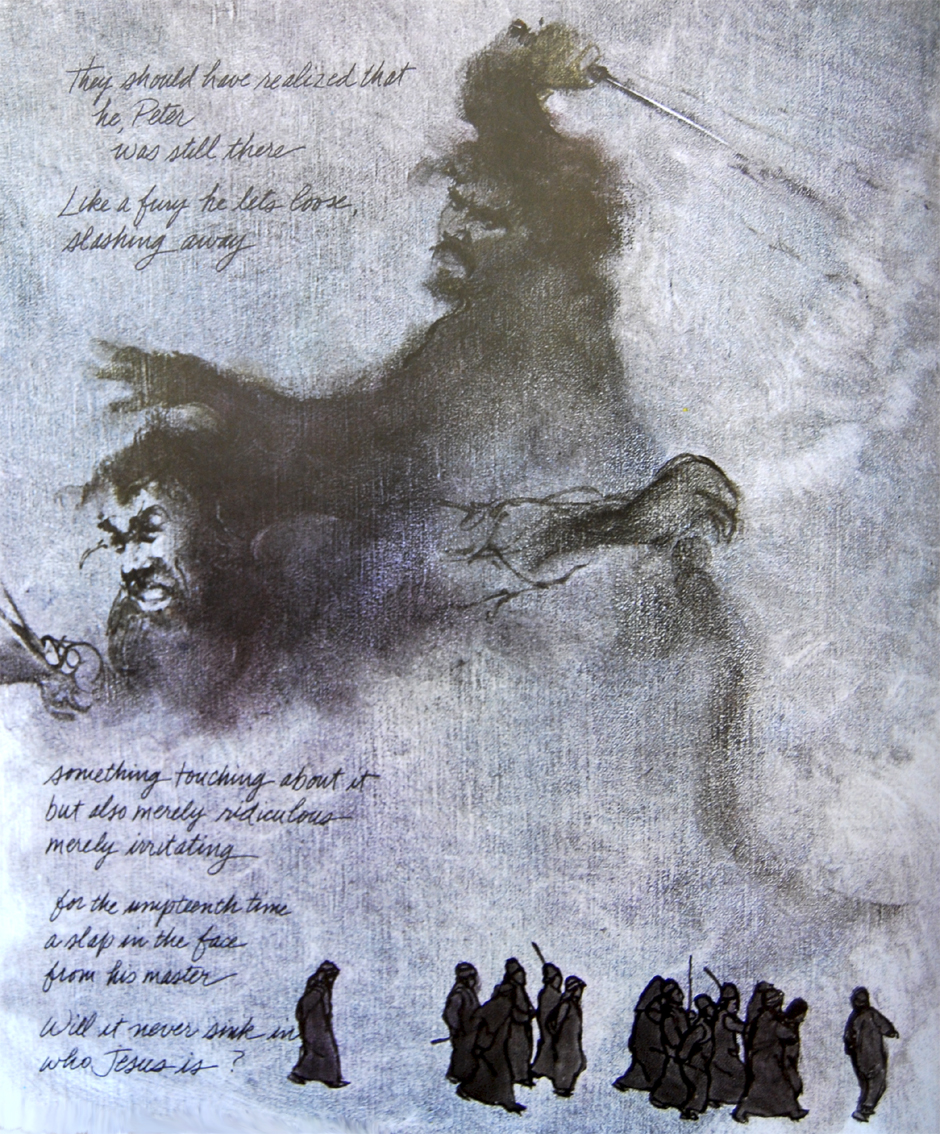 They should have realized that
he, Peter
was still there
Like a fury he lets loose,
slashing away
something touching about it
but also merely ridiculous
merely irritating
for the umpteenth time
a slap in the face
from his master
Will it never sink in
who Jesus is ?